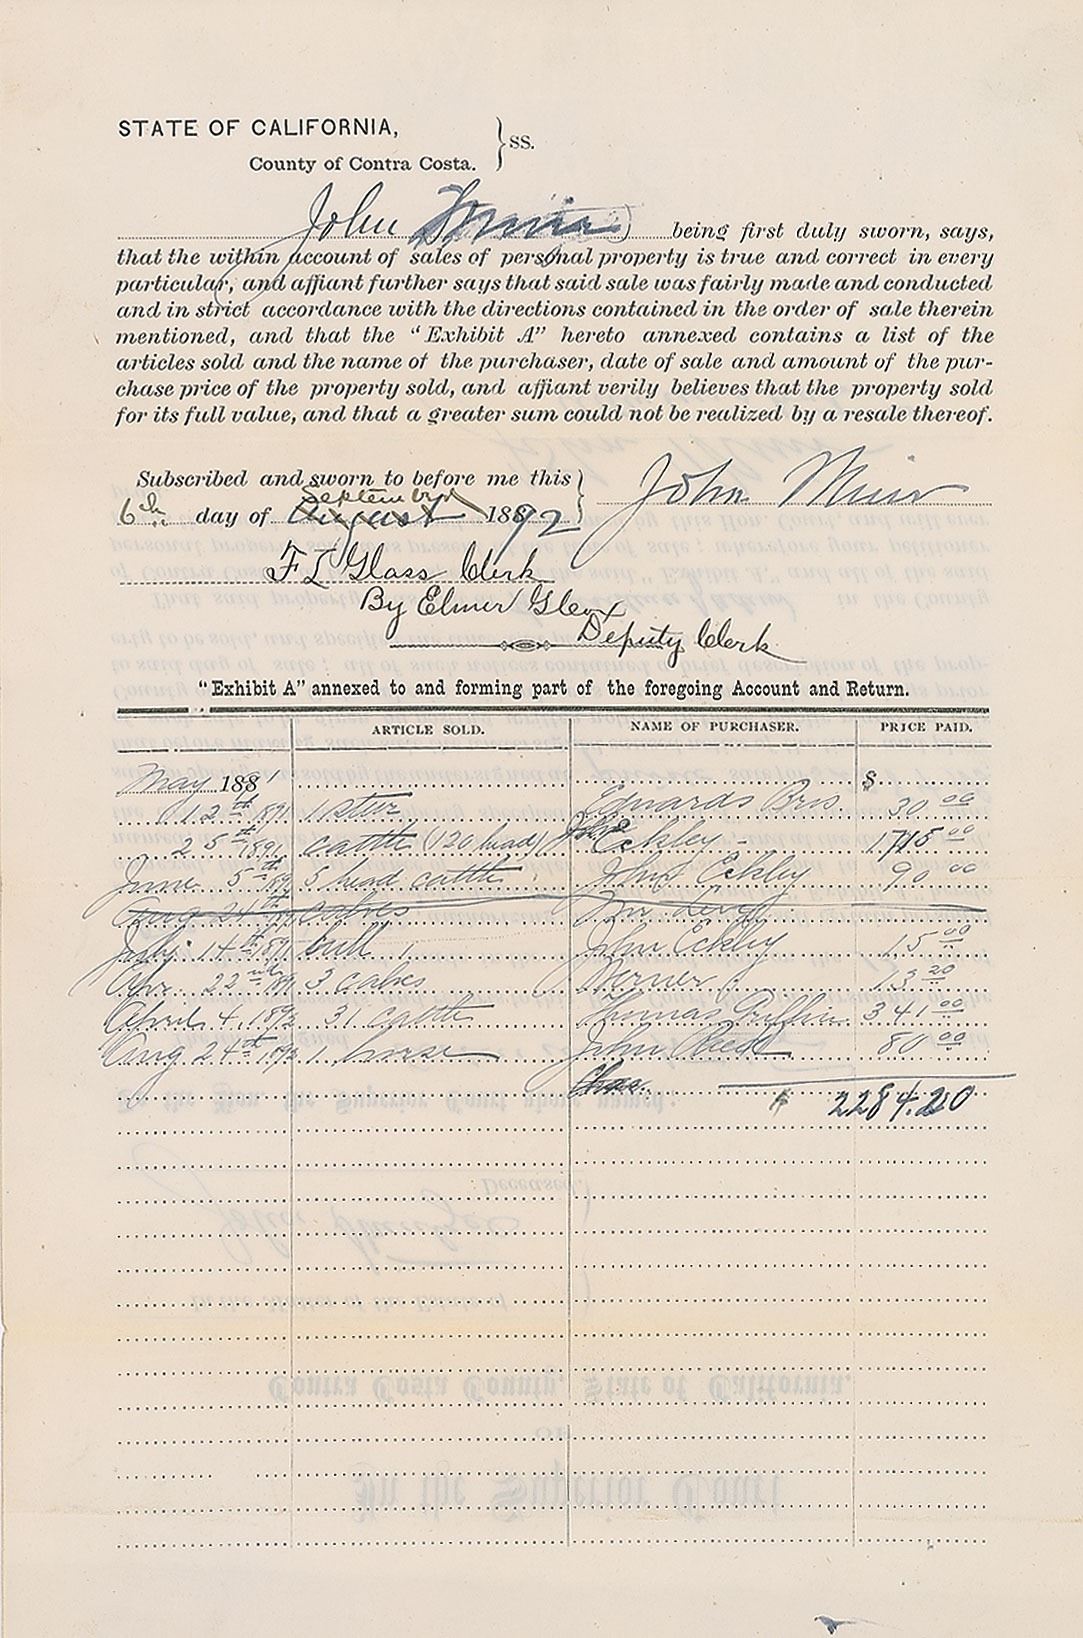 STATE OF CALIFORNIA,
County of Contra Costa. } SS.
John Muir being first duly sworn, says,
that the within account of sales of personal property is true and correct in every
particular, and affiant further says that said sale was fairly made and conducted
and in strict accordance with the directions contained in the order of sale therein
mentioned, and that the "Exhibit A" hereto annexed contains a list of the
articles sold and the name of the purchaser, date of sale and amount of the pur-
chase price of the property sold, and affiant verily believes that the property sold
for its full value, and that a greater sum could not be realized by a resale thereof.
Subscribed and sworn to before me this } John Muir
September
6th day of August 1892
F L Glass Clerk
By Elmer Glass
Deputy Clerk
"Exhibit A" annexed to and forming part of the foregoing Account and Return.
ARTICLE SOLD. NAME OF PURCHASER. PRICE PAID.
May 1891 $
12th 1891 1 stur Edwards Bros. 30 00
25th 1891 cattle (120 head) Eckley 1715 00
June 5th 1891 5 head cattle John Eckley 90 00
Aug 24th calves
July 14th 1891 bull 1 John Eckley 15 00
Apr 22nd 1891 3 calves 13 20
April 4 1892 31 cattle Thomas Griffin 341 00
Aug 24th 1892 1 horse John Reed 80 00
Chas.
$ 2284.20